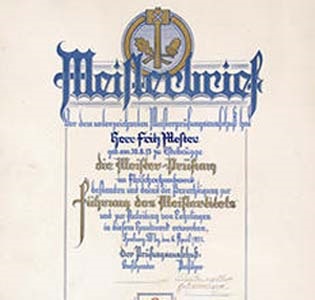 Meisterbrief
Vor dem unterzeichneten Meisterprüfungsausschuß hat
Herr Fritz Mester
geb. am 30.8.13 zu
die Meister-Prüfung
im Fleischerhandwerk
bestanden und damit die Berechtigung zur
Führung des Meistertitels
und zur Anleitung von Lehrlingen
in diesem Handwerk erworben.
den 6. April
Der Prüfungsausschuß